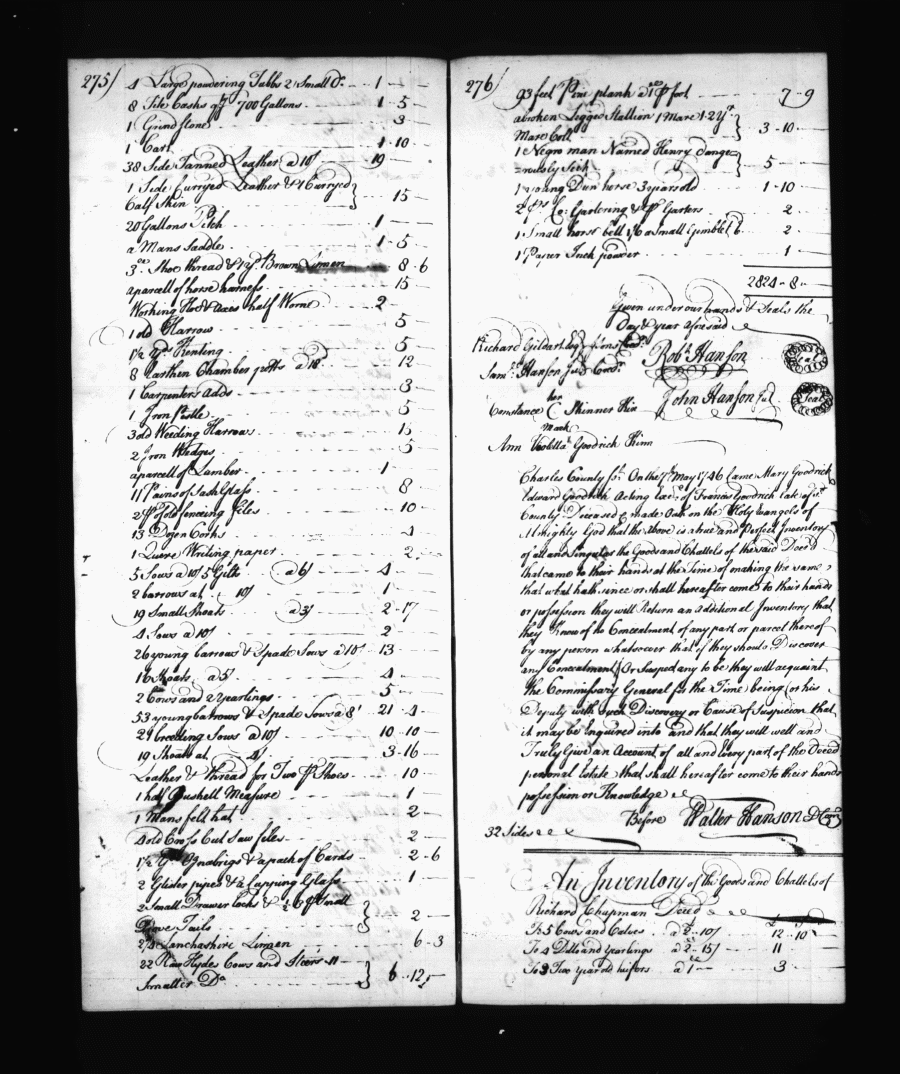 275/
4 Large powdering Tubbs 2 Small Do 1 - -
8 Tite Casks qt 700 Gallons 1 - 5 -
1 Grindstone 3
1 Cart 1 - 10 -
38 Side Tanned Leather a 10/ 19
1 Side Curryed Leather & 1 Curryed
Calf Skin 15 -
20 Gallons Pitch 1 -
a Mans Saddle 1 - 5
3 oz Shoe thread & 1 yd Brown Linnen 8 - 6
a parcell of horse harness 15
Working Hos & axes half Worne 2 -
1 old Harrow 5
1½ yds Kenting 5
8 Earthen Chamber potts a 18d 12
1 Carpenters Adds 3
1 Iron Pestle 5
3 old Weeding Harrows 15
2 Iron Wedges 5
a parcell of Lumber 1
11 Pains of Sash Glass 8
2 pr old fencing files 10 -
13 Dozen Corks 4
1 Quire Writing paper 2
5 Sows a 10/ 5 Gilts a 6/ 4 -
2 barrows at 10/ 1
19 Small Shoats a 3/ 2 - 17
4 Sows a 10/ 2
26 young barrows & Spade Sows a 10/ 13
16 Shoats a 5/ 4
2 Cows and 2 Yearlings 5
53 young barrows & Spade Sows a 8/ 21 - 4
21 breeding Sows a 10/ 10 - 10
19 Shoats at 4/ 3 - 16
Leather & thread for Two pr Shoes 10
1 half Bushell Measure 1
1 Mans felt hat 2 -
4 old Cross Cut Saw files 2
1½ yd Oznabrigs & a pack of Cards 2 - 6
2 Glister pipes & 2 Cupping Glass 1
2 Small Drawer locks & ½ Small
Dove Tails 2
2¼ Lanchashire Linnen 6 - 3
22 Raw Hydes Cows and Steers 11
Smaller Do 6 - 12
276/
93 feet Pine plank a 1d pr foot 7 - 9
a broken Legged Stallion 1 Mare 1 2 yr
Mare Colt 3 - 10
1 Negro man Named Henry dange
=rously Sick 5
1 young Dun horse 3 years old 1 - 10
2 yds Co: Gartering & pr Garters 2
1 Small horse bell & a Small Gimblet 2
1 Paper Inck powder 1
2824 - 8
Given under our hands & Seals the
Day & year aforesaid
Richard Gildart Esq & Sons
Saml Hanson Jur Credr
Robt Hanson Seal
John Hanson Jur Seal
her
Constance C Skinner Kin
mark
Ann Violetta Goodrich Kinn
Charles County Sst On the 7th May 1746 Came Mary Goodrick
Edward Goodrick Acting Exrs of Francis Goodrich late of sd
County Deceased & made Oath on the Holy Evangels of
Almighty God that the Above is a true and Perfect Inventory
of all and Singular the Goods and Chattels of the said Deced
that came to their hands at the Time of making the same,
that what hath since or shall hereafter come to their hands
or possession they will Return an additional Inventory that
they Know of no Concealment of any part or parcel thereof
by any person whatsoever that if they should Discover
any Concealment Or Suspect any to be they will acquaint
the Commissary General for the Time being or his
Deputy with such Discovery or Cause of Suspicion that
it may be Enquired into and that they will well and
Truly Give an Account of all and every part of the Deced
personal Estate that shall hereafter come to their hands
possession or Knowledge
Before Walter Hanson D Com
32 Sides
An Inventory of the Goods and Chattels of
Richard Chapman Deced
To 5 Cows and Calves a 2 - 10/ 12 - 10
To 4 Ditto and yearlings a 2 - 15/ 11
To 3 Two year old heifers a 1 - 3